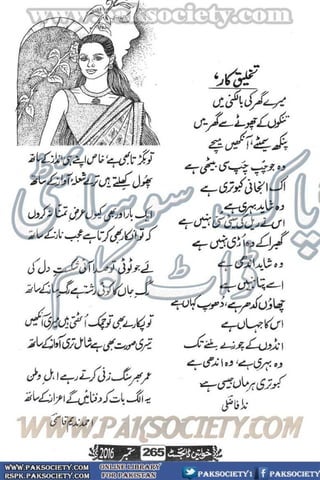 www.paksociety.com
تخلیق کار،
میرے گھر کی بالکنی میں
تنکوں کے چھوٹے سے گھر میں
پنکھ سمیٹے آنکھیں میچے
وہ جو چپ چپ سی بیٹھی ہے
اک انجانی کبوتری ہے
وہ شاید بہری ہے
اس نے سنی نہیں ہے
گھبرا کے وہ اڑی نہیں ہے
وہ شاید اندھی ہے
اسے پتا نہیں ہے
چھاؤں کدھر ہے، دھوپ کہاں ہے
اس کا جہاں ہے
انڈوں کے چوزے بننے تک
وہ بہری ہے، وہ اندھی ہے
کبوتری ہر ماں جیسی ہے
ندا فاضلی
تو بگڑتا بھی ہے خاص اپنے ہی انداز کے ساتھ
پھول کھلتے ہیں ترے شعلۂ آواز کے ساتھ
ایک بار اور بھی کیوں عرض تمنا نہ کروں
کہ تو انکار بھی کرتا ہے عجب ناز کے ساتھ
لے جو ٹوٹی تو صدا آئی شکست دل کی
رگ جاں کا کوئی رشتہ ہے رگ ساز کے ساتھ
تو پکارے بھی تو چمک اٹھتی ہیں میری آنکھیں
تیری صورت بھی ہے شامل تری آواز کے ساتھ
عمر بھر سنگ زنی کرتے رہے اہل وطن
یہ الگ بات کہ دفنائیں گے اعزاز کے ساتھ
احمد ندیم قاسمی
پاک سوسائٹی
ڈاٹ کام
WWW.PAKSOCIETY.COM
خواتین ڈائجسٹ 265 ستمبر 2016
WWW.PAKSOCIETY.COM
RSPK.PAKSOCIETY.COM
ONLINE LIBRARY
FOR PAKISTAN
PAKSOCIETY1
PAKSOCIETY